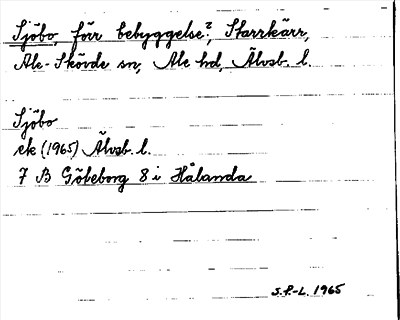 Sjöbo, förr bebyggelse?, Starrkärr,
Ale-Skövde sn, Ale hd, Älvsb. l.
Sjöbo
ek (1965) Älvsb. l.
7 B Göteborg 8 i Hålanda
S.F.-L. 1965